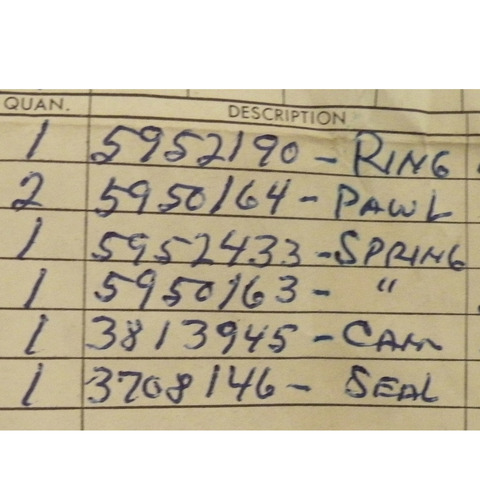 QUAN. DESCRIPTION
1 5952190 - RING
2 5950164 - PAWL
1 5952433 - SPRING
1 5950163 - "
1 3813945 - CAM
1 3708146 - SEAL